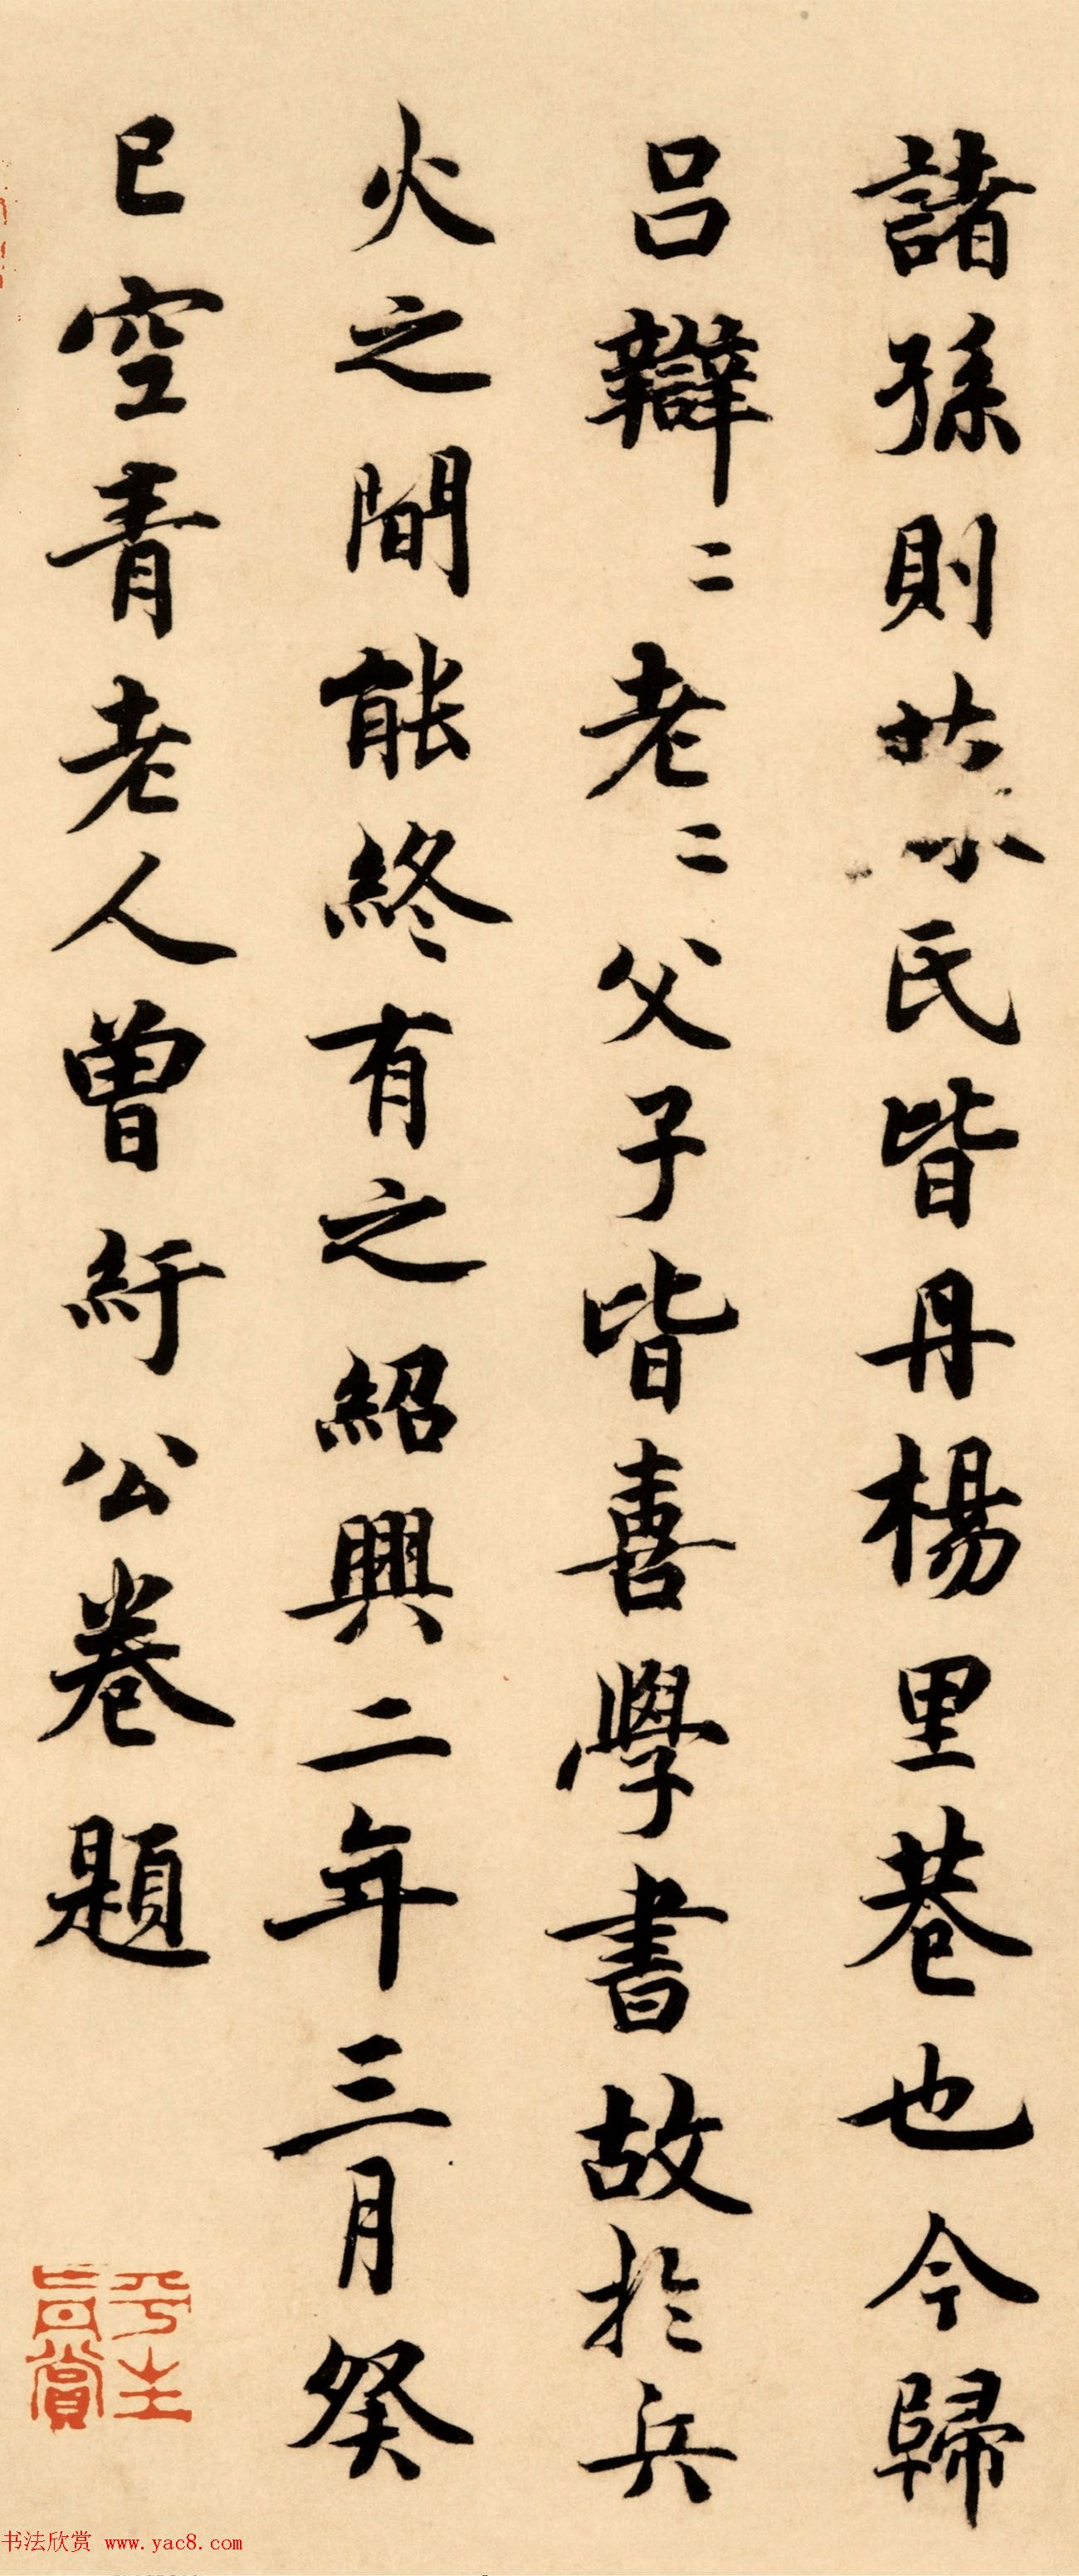 諸孫則蘇氏皆丹楊里巷也今歸
呂辯二老二父子皆喜學書故於兵
火之間能終有之紹興二年三月癸
巳空青老人曾紆公卷題
平生真賞
书法欣赏 www.yac8.com